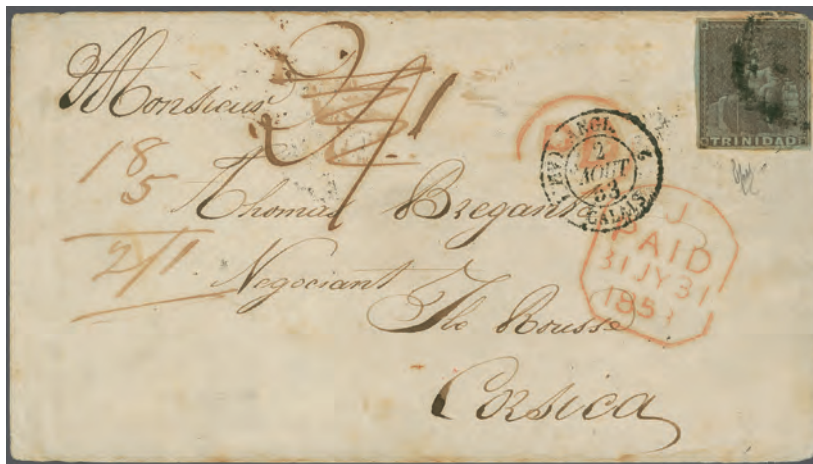 Monsieur
Thomas Bregante
Negociant
Ile Rousse
Corsica
18
5
2/1
2/1
TRINIDAD
ANGL.
2
AOUT
53
CALAIS
J
PAID
31 JY 31
1853